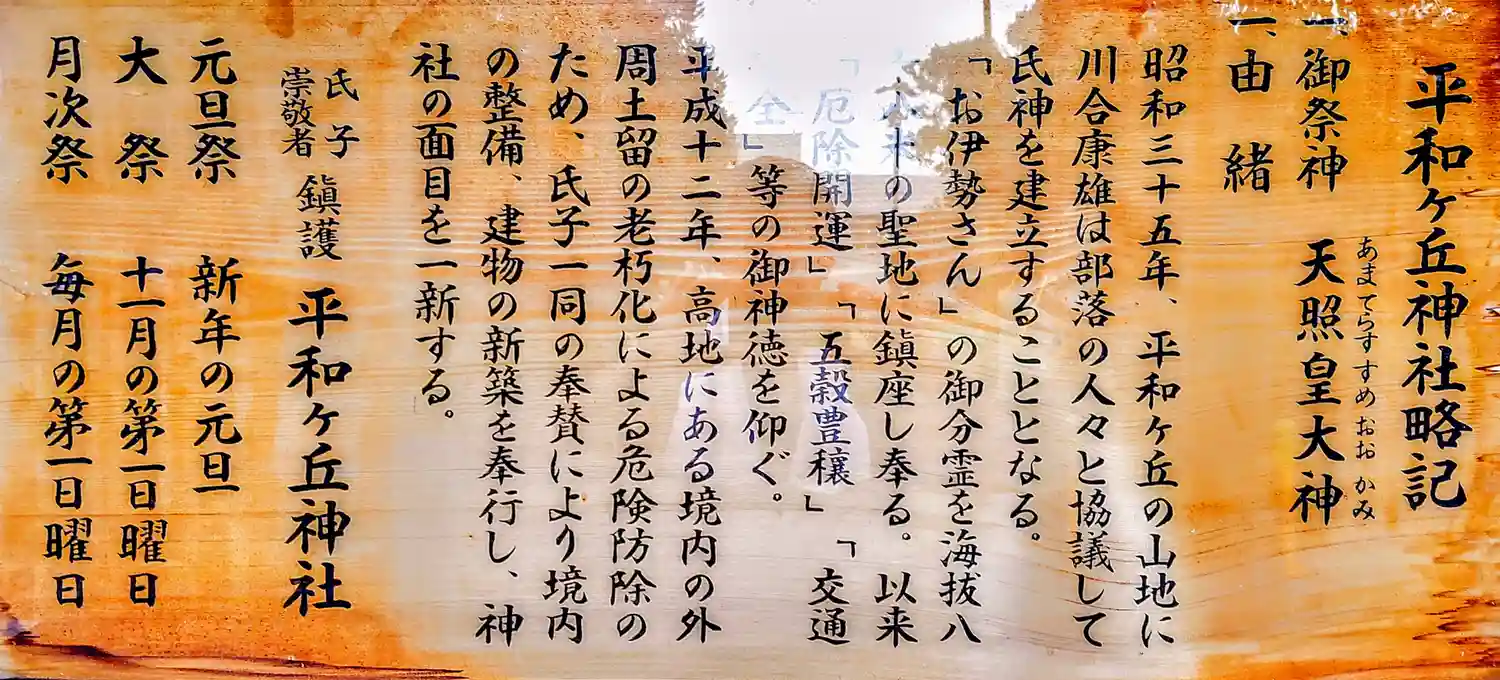 平和ヶ丘神社略記
一、御祭神　天照皇大神
あまてらすすめおおかみ
一、由　緒
昭和三十五年、平和ヶ丘の山地に
川合康雄は部落の人々と協議して
氏神を建立することとなる。
「お伊勢さん」の御分霊を海抜八
の聖地に鎮座し奉る。以来
「厄除開運」「五穀豊穣」「交通
全」等の御神徳を仰ぐ。
平成十二年、高地にある境内の外
周土留の老朽化による危険防除の
ため、氏子一同の奉賛により境内
の整備、建物の新築を奉行し、神
社の面目を一新する。
氏子
崇敬者
鎮護　平和ヶ丘神社
元旦祭　新年の元旦
大　祭　十一月の第一日曜日
月次祭　毎月の第一日曜日